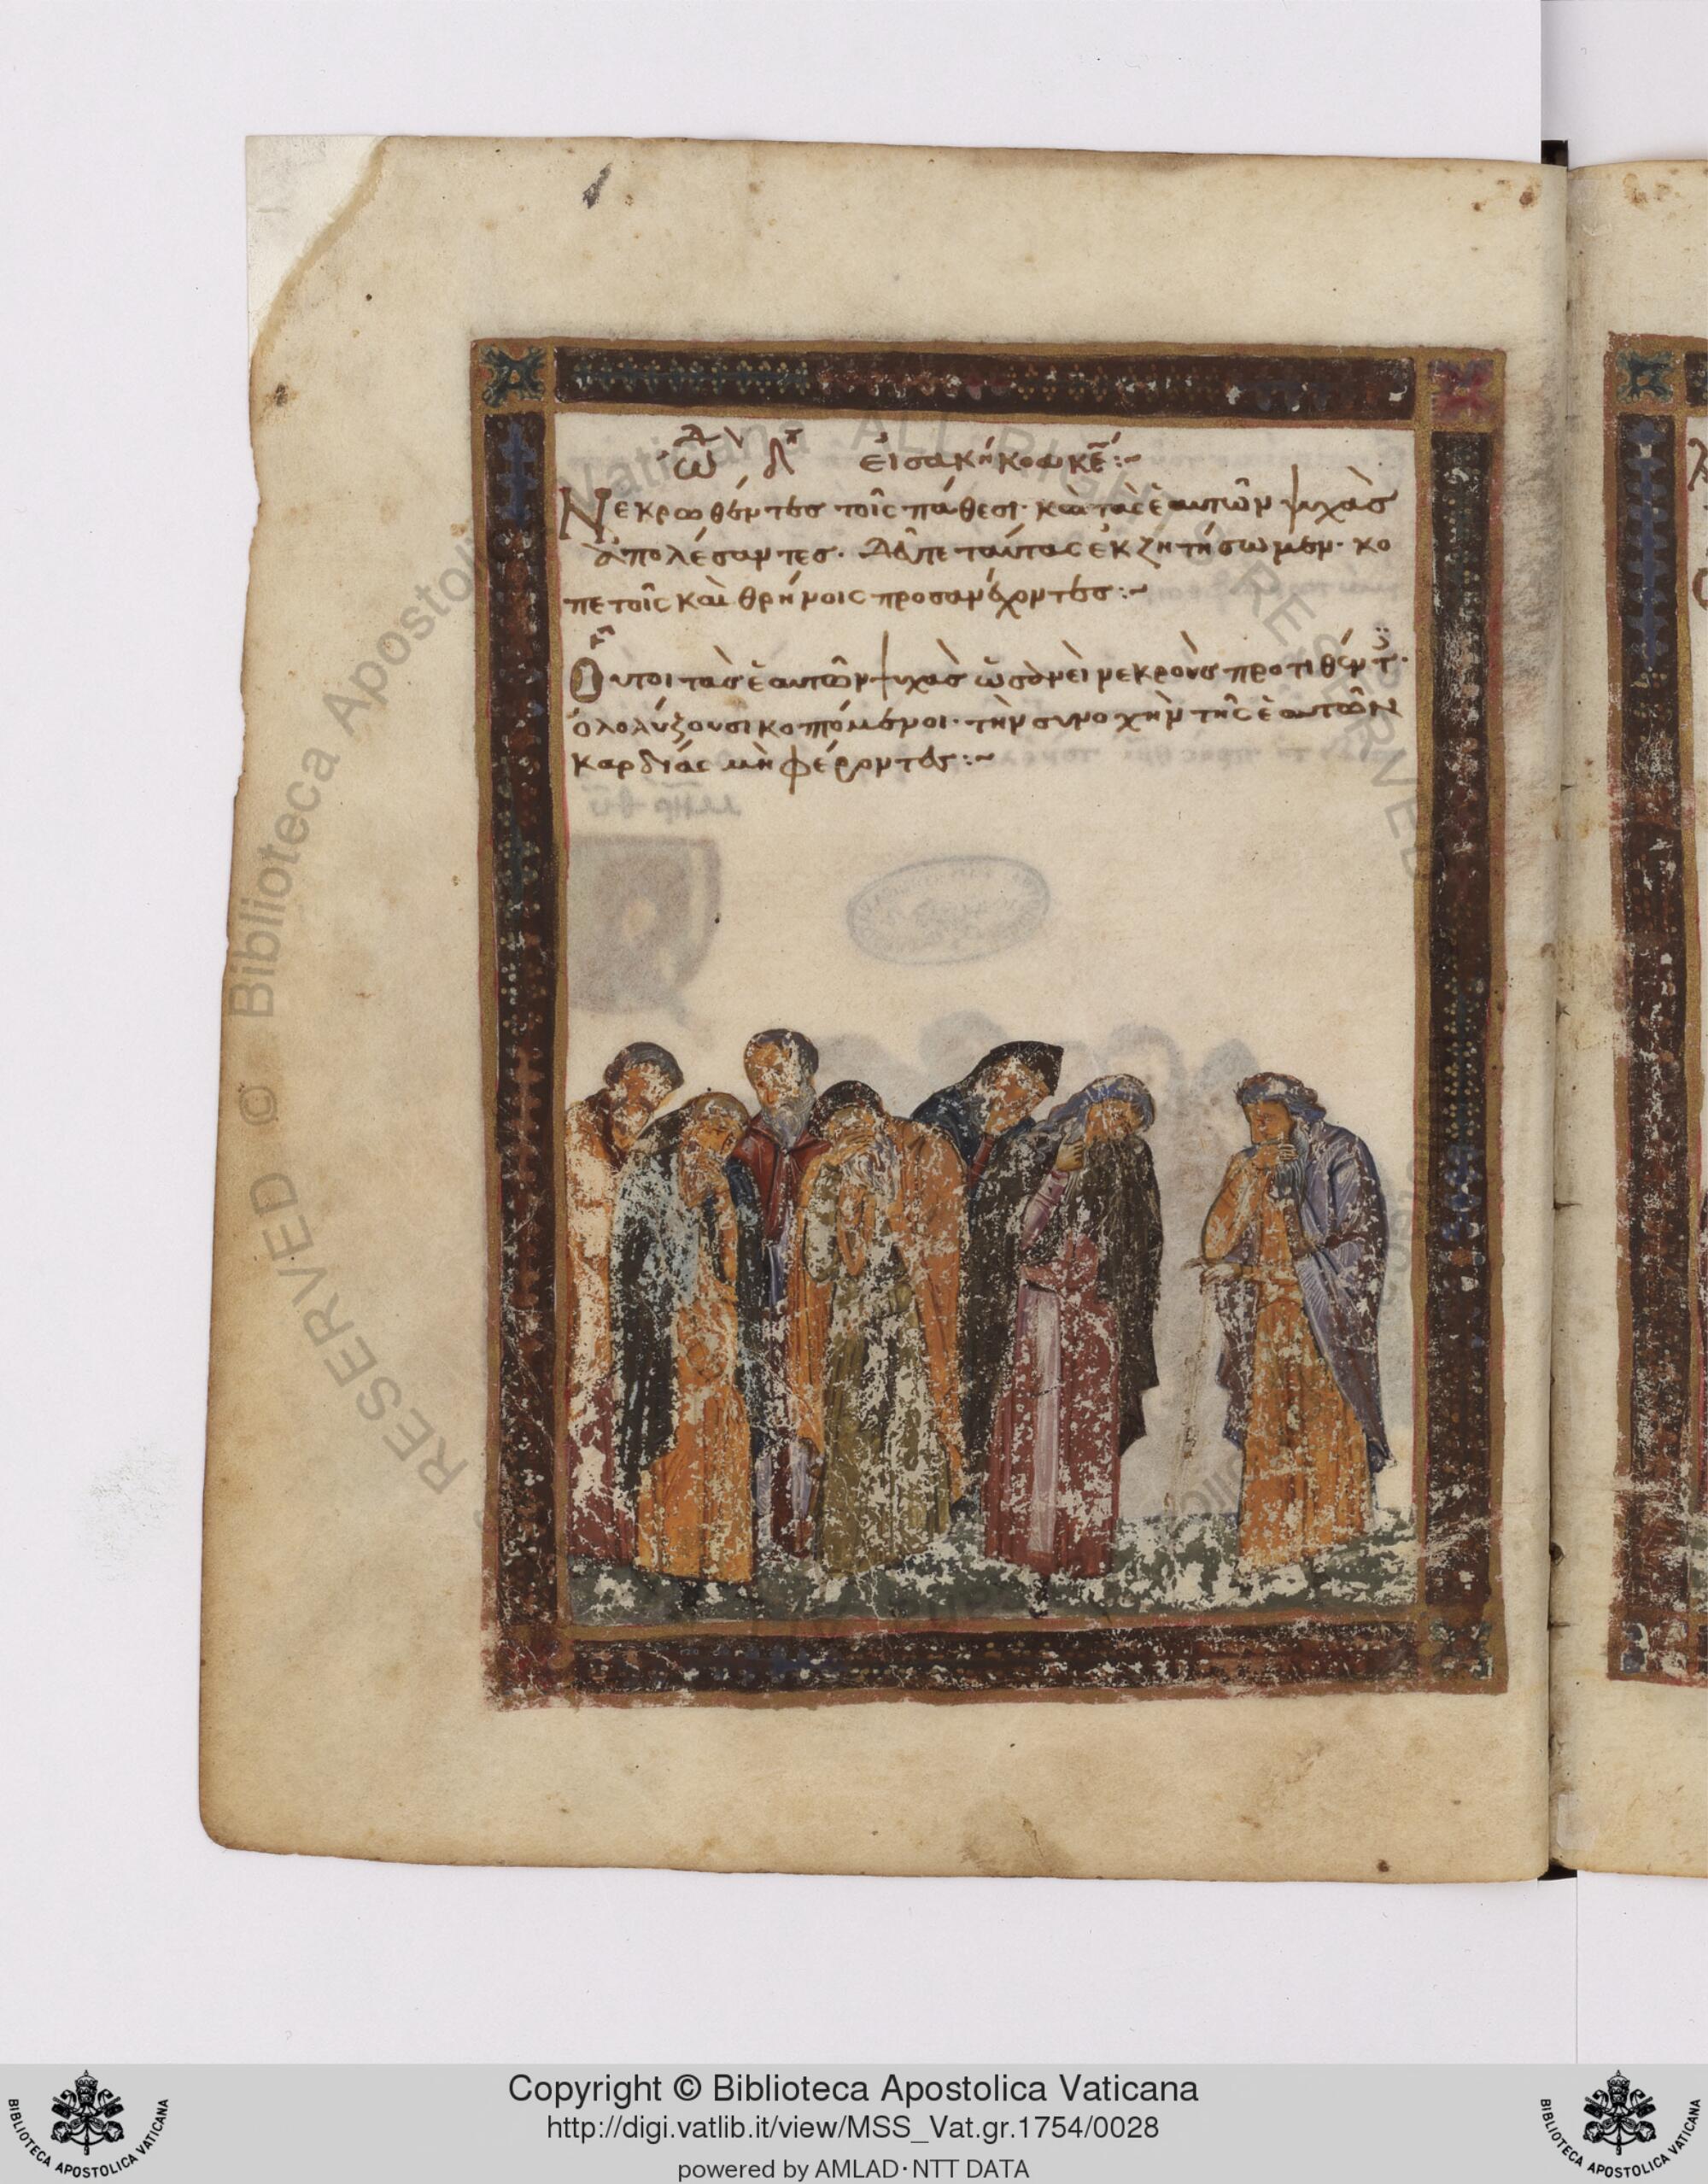 ᾠδ δ εἰσακήκοα κε:~
Νεκρωθέντες τοῖς πάθεσι· καὶ τὰς ἑαυτῶν ψυχὰς
ἀπολέσαντες. Δεῦτε ταύτας ἐκζητήσωμεν· κο
πετοῖς καὶ θρήνοις προσανέχοντες:~
Οὗτοι τὰς ἑαυτῶν ψυχὰς ὡσανεὶ νεκροὺς προτιθέντ·
ὀλολύζουσι κοπτόμενοι· τὴν συνοχὴν τῆς ἑαυτῶν
καρδίας μὴ φέροντες:~
© Biblioteca Apostolica Vaticana ALL RIGHTS RESERVED
Copyright © Biblioteca Apostolica Vaticana
http://digi.vatlib.it/view/MSS_Vat.gr.1754/0028
powered by AMLAD·NTT DATA
BIBLIOTECA APOSTOLICA VATICANA
BIBLIOTECA APOSTOLICA VATICANA